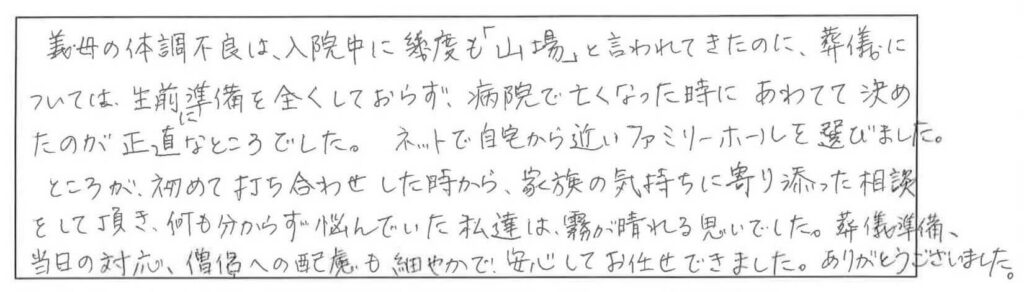 義母の体調不良は、入院中に幾度も「山場」と言われてきたのに、葬儀に
ついては、生前に準備を全くしておらず、病院で亡くなった時に あわてて決め
たのが正直なところでした。 ネットで自宅から近いファミリーホールを選びました。
ところが、初めて打ち合わせした時から、家族の気持ちに寄り添った相談
をして頂き、何も分からず悩んでいた私達は、霧が晴れる思いでした。葬儀準備、
当日の対応、僧侶への配慮も細やかで、安心してお任せできました。ありがとうございました。